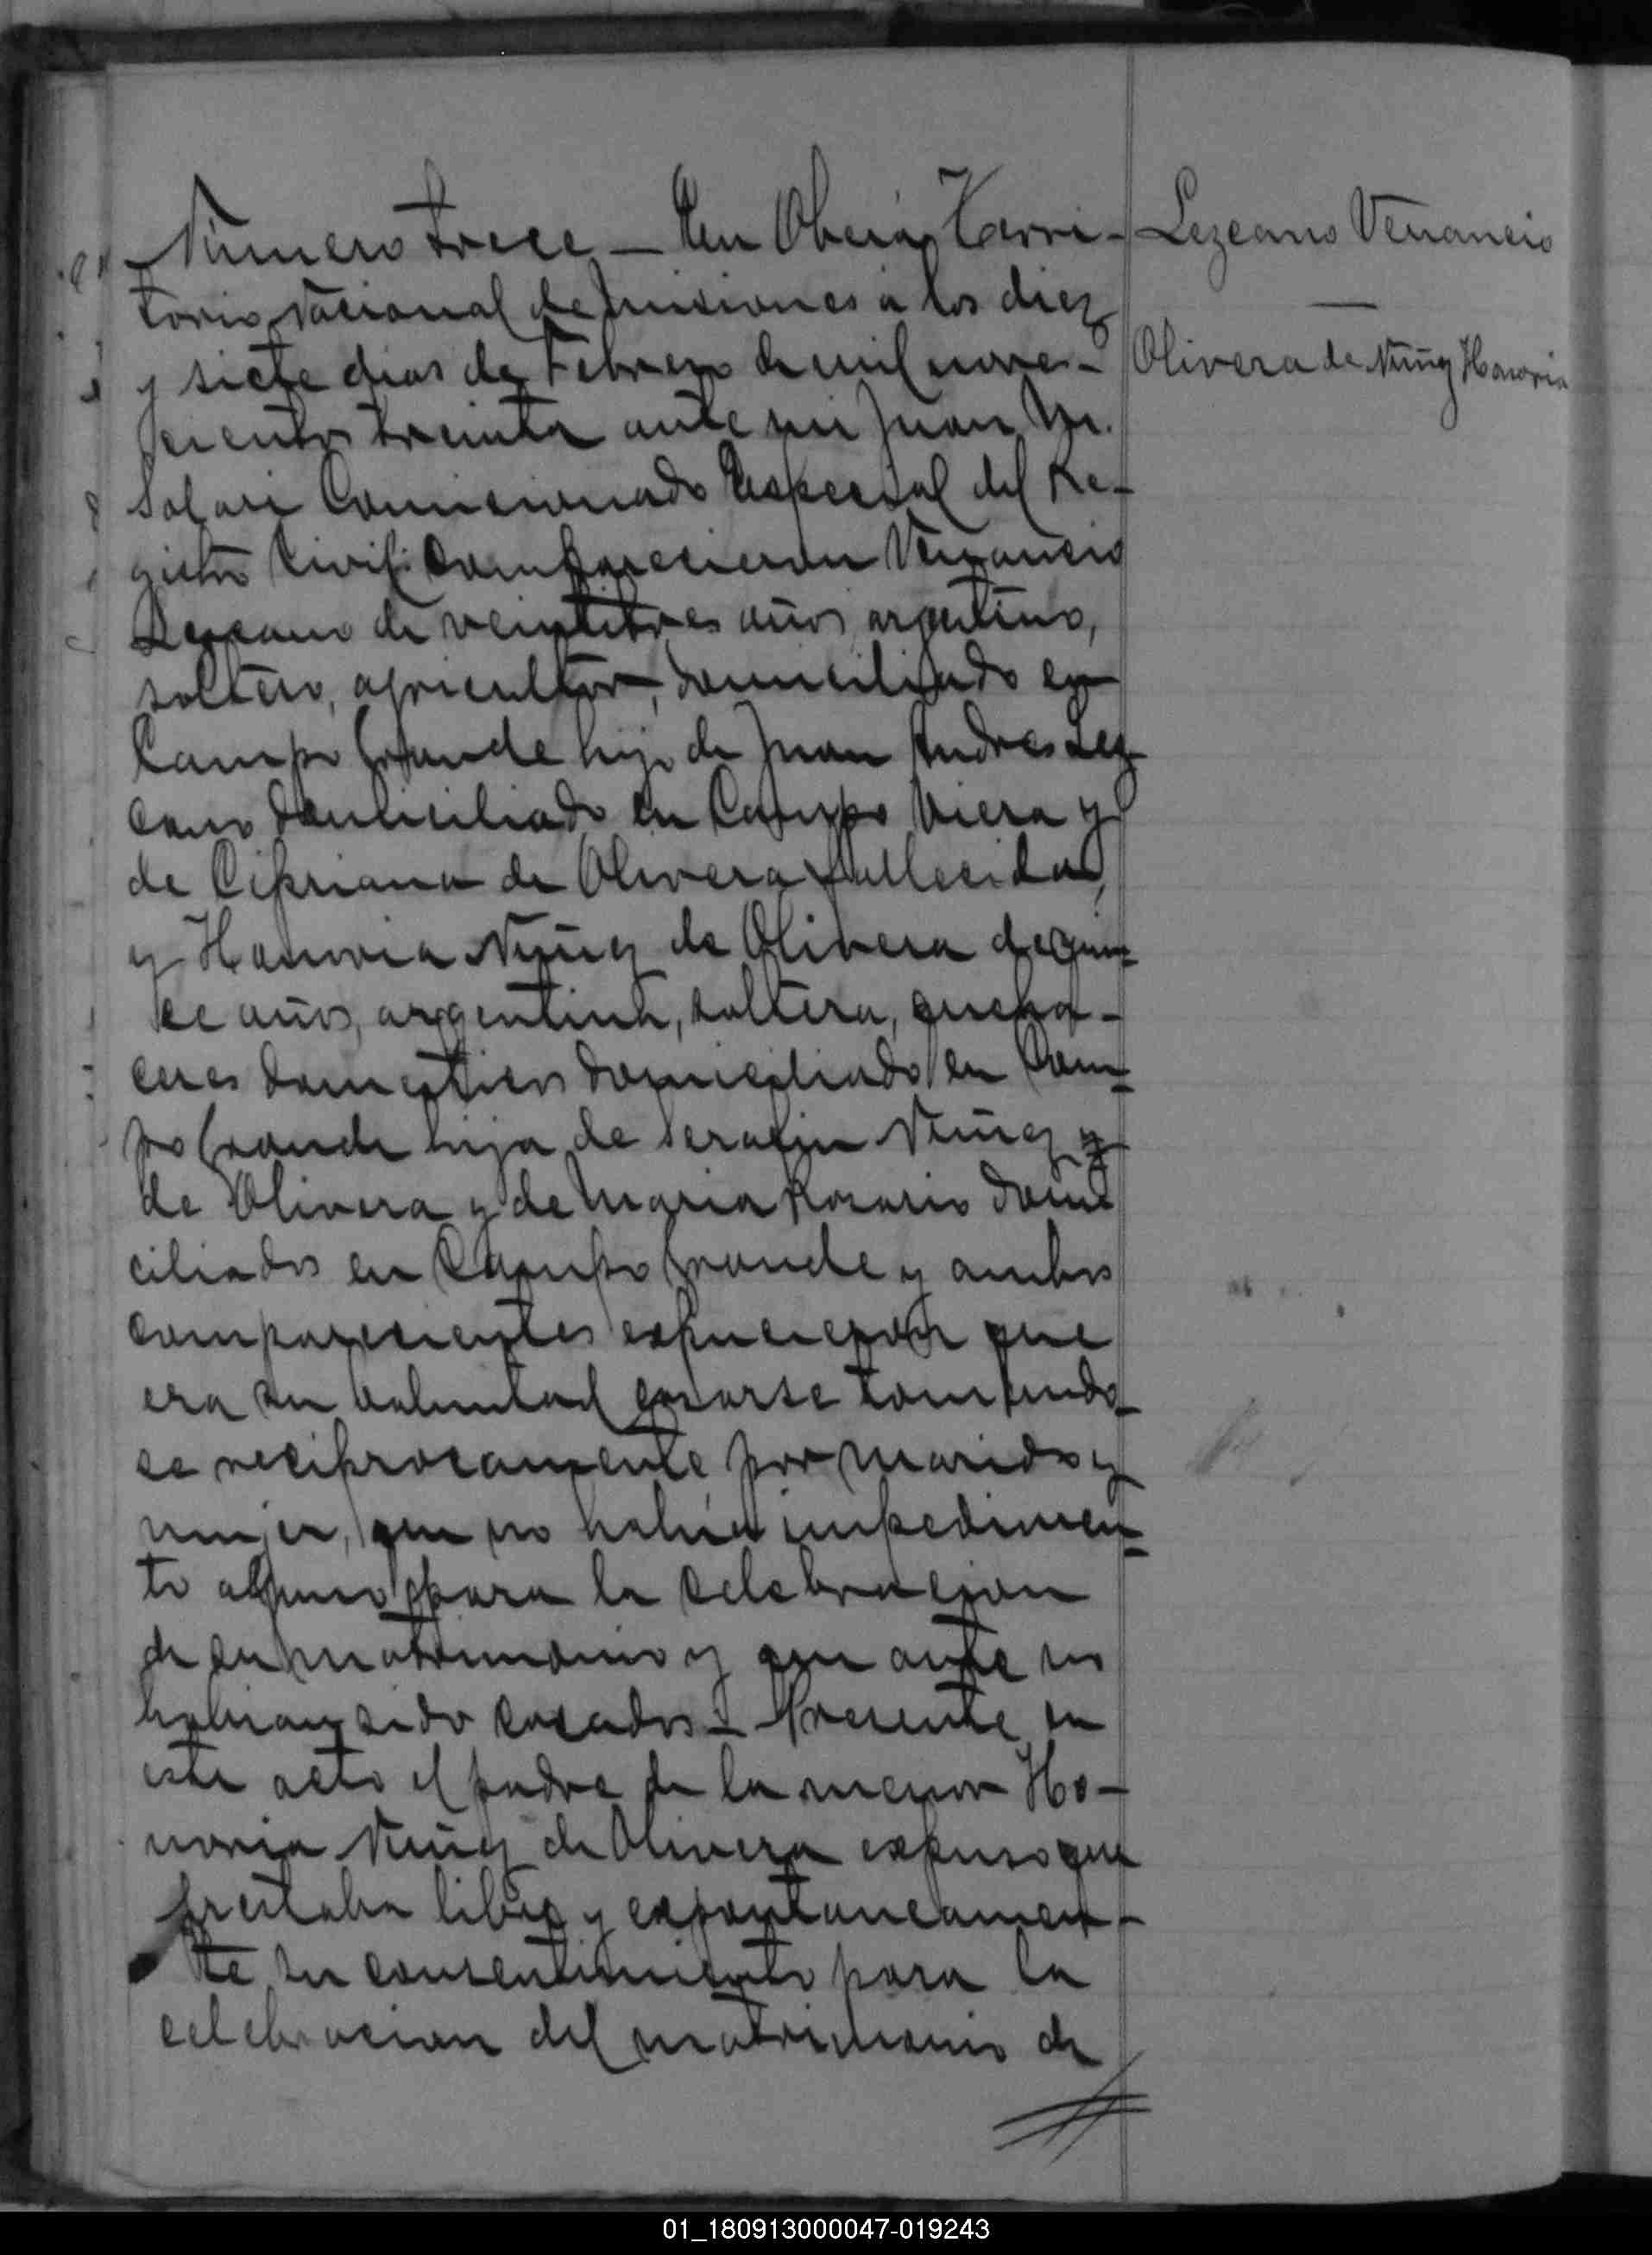 Número trece — En Oberá, Terri-
torio Nacional de Misiones a los diez
y siete dias de Febrero de mil nove-
cientos treinta ante mi Juan M.
Solari Comicionado Especial del Re-
gistro Civil: Comparecieron Venancio
Lezcano de veintitres años, argentino,
soltero, agricultor, domiciliado en
Campo Grande hijo de Juan Andres Lez
cano domiciliado en Campo Viera y
de Cipriana de Olivera fallecida,
y Honoria Nuñez de Olivera de quin=
ce años, argentina, soltera, queha-
ceres domesticos domiciliado en Cam=
po Grande hija de Serafin Nuñez y
de Olivera y de Maria Rosario domi
ciliados en Campo Grande y ambos
comparecientes expucieron que
era su voluntad casarse tomando-
se reciprocamente por marido y
mujer, que no habia impedimen=
to alguno para la celebracion
de su matrimonio y que ante no
habian sido casados — Presente en
este acto el padre de la menor Ho-
noria Nuñez de Olivera expuso que
prestaba libre y expontaneamen-
te su consentimiento para la
celebracion del matrimonio de
Lezcano Venancio
—
Olivera de Nuñez Honoria
01_180913000047-019243